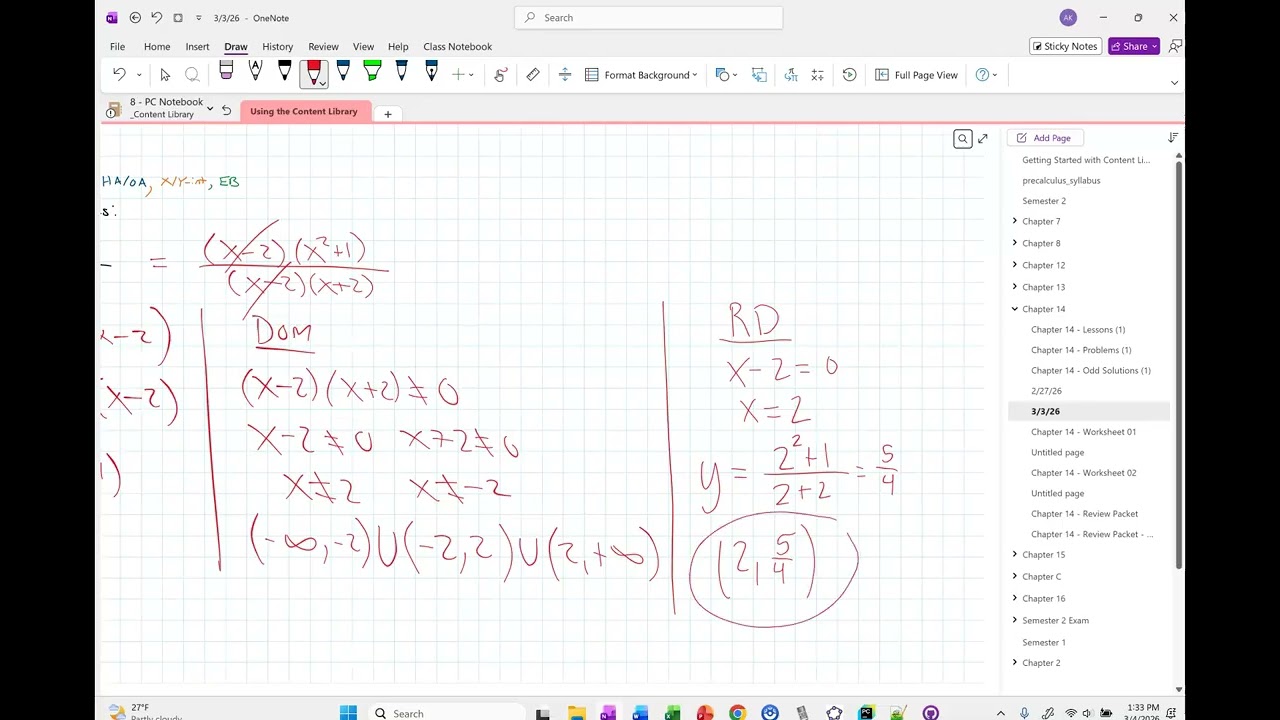 3/3/26 - OneNote
Search
AK
File Home Insert Draw History Review View Help Class Notebook
Sticky Notes
Share
Format Background
Full Page View
8 - PC Notebook
_Content Library
Using the Content Library
Add Page
Getting Started with Content Li...
precalculus_syllabus
Semester 2
Chapter 7
Chapter 8
Chapter 12
Chapter 13
Chapter 14
Chapter 14 - Lessons (1)
Chapter 14 - Problems (1)
Chapter 14 - Odd Solutions (1)
2/27/26
3/3/26
Chapter 14 - Worksheet 01
Untitled page
Chapter 14 - Worksheet 02
Untitled page
Chapter 14 - Review Packet
Chapter 14 - Review Packet - ...
Chapter 15
Chapter C
Chapter 16
Semester 2 Exam
Semester 1
Chapter 2
HA/OA, X/Y-int, EB
s:
= (x-2)(x²+1)
(x-2)(x+2)
x-2)
(x-2)
1)
Dom
(x-2)(x+2)≠0
x-2≠0 x+2≠0
x≠2 x≠-2
(-∞,-2)∪(-2,2)∪(2,+∞)
RD
x-2=0
x=2
y = 2²+1/2+2 = 5/4
(2, 5/4)
27°F
Partly cloudy
Search
1:33 PM
3/4/2026